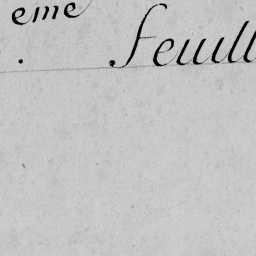 eme
. feuill